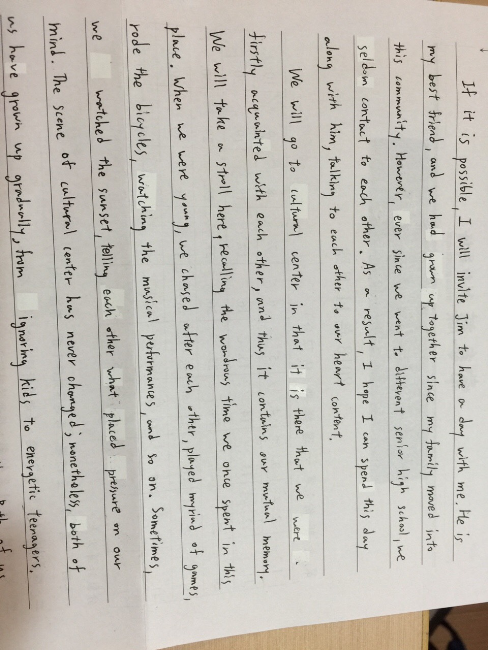 If it is possible, I will invite Jim to have a day with me. He is
my best friend, and we had grown up together since my family moved into
this community. However, ever since we went to different senior high school, we
seldom contact to each other. As a result, I hope I can spend this day
along with him, talking to each other to our heart content.
We will go to cultural center in that it is there that we were
firstly acquainted with each other, and thus it contains our mutual memory.
We will take a stroll here, recalling the wondrous time we once spent in this
place. When we were young, we chased after each other, played myriad of games,
rode the bicycles, watching the musical performances, and so on. Sometimes,
we watched the sunset, telling each other what placed pressure on our
mind. The scene of cultural center has never changed; nonetheless, both of
us have grown up gradually, from ignoring kids to energetic teenagers.
both of us